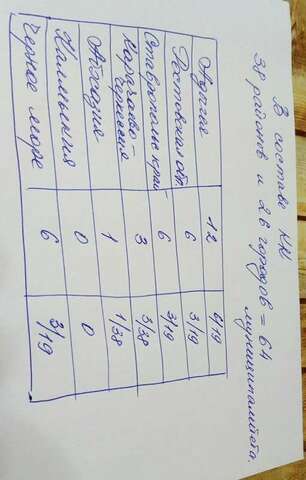 В составе КК
38 районов и 26 городов = 64
муниципалитета.
Адыгея 12 6/19
Ростовская обл. 6 3/19
Ставрополь край 6 3/19
Карачаево-
Черкессия 3 3/38
Абхазия 1 1/38
Калмыкия 0 0
Черное море 6 3/19